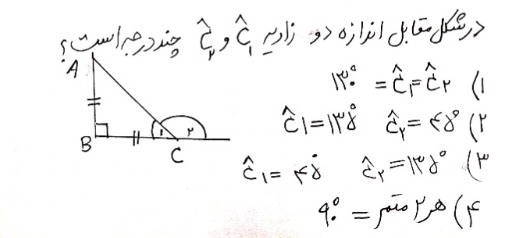 در شکل مقابل اندازه دو زاویه Ĉ۱ و Ĉ۲ چند درجه است؟
A
B
C
۱
۲
۱) Ĉ۱=Ĉ۲ = ۱۳۰°
۲) Ĉ۱=۱۳۵° Ĉ۲=۴۵°
۳) Ĉ۱=۴۵° Ĉ۲=۱۳۵°
۴) هر ۲ متمم = ۹۰°